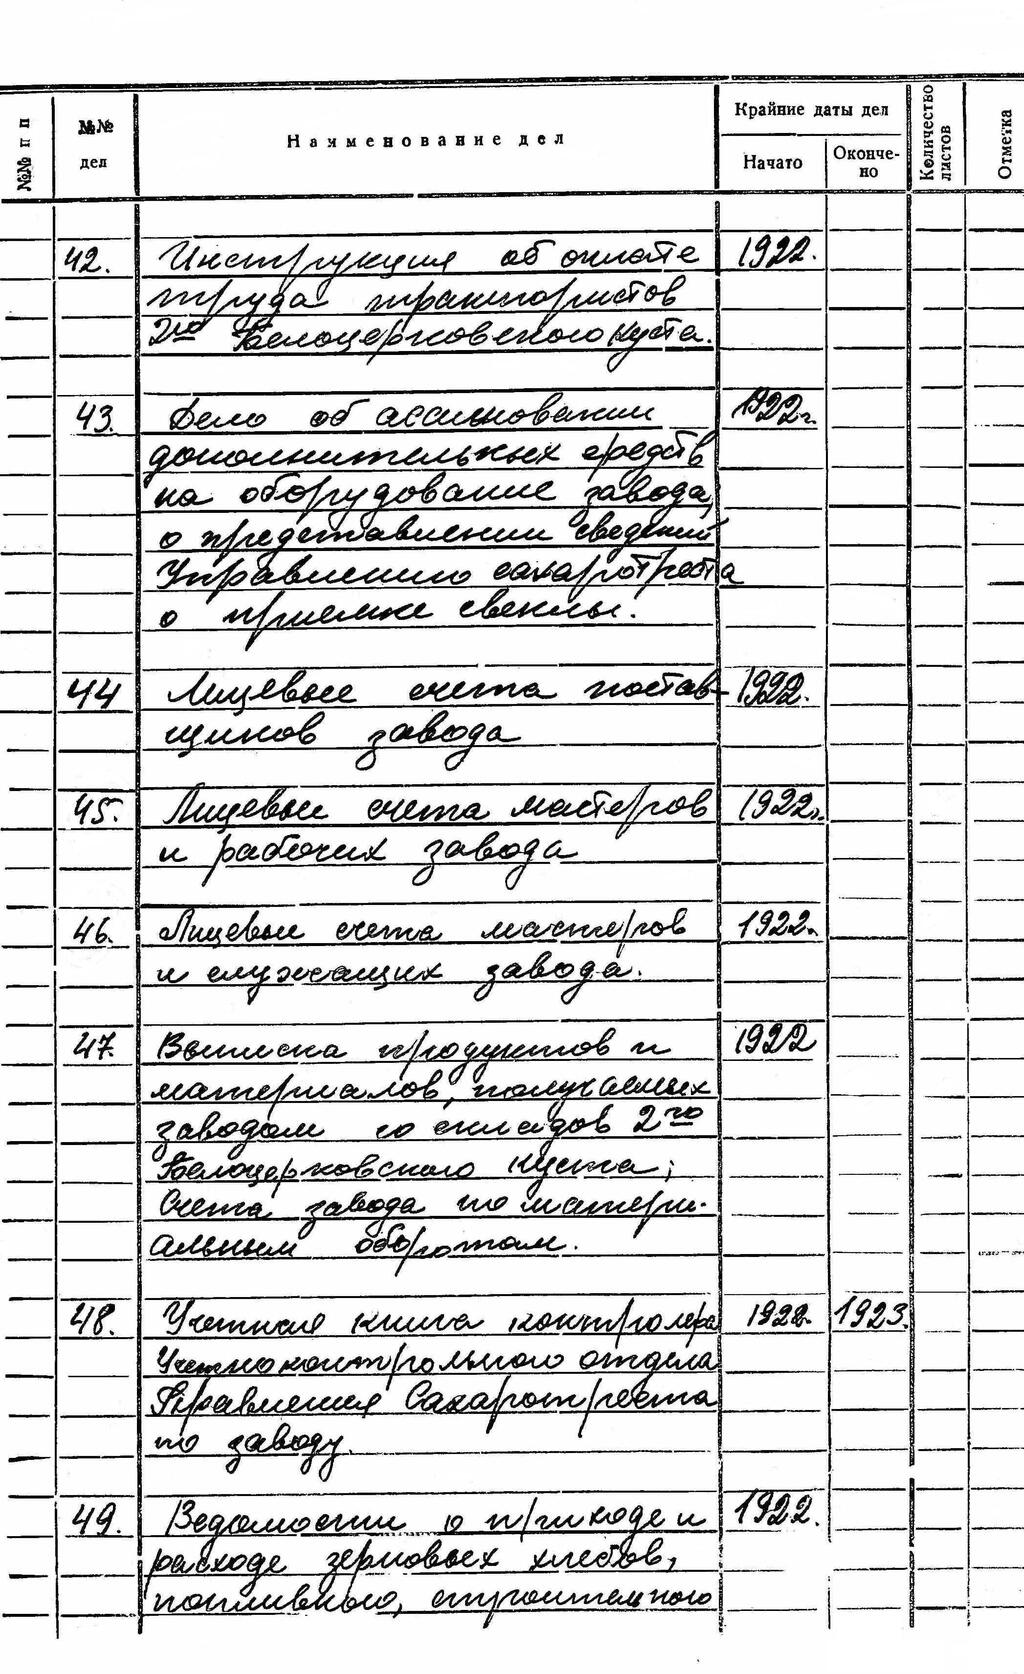 №№ п п
№№ дел
Наименование дел
Крайние даты дел
Начато
Окончено
Количество листов
Отметка
42. Инструкция об оплате 1922.
труда транспортистов
2го Белоцерковского куста.
43. Дело об ассигновании 1922г.
дополнительных средств
на оборудование завода,
о представлении сведений
Управлению сахаротреста
о приемке свеклы.
44 Лицевые счета постав- 1922.
щиков завода
45. Лицевые счета мастеров 1922г.
и рабочих завода
46. Лицевые счета мастеров 1922г.
и служащих завода.
47. Выписка продуктов и 1922
материалов, получаемых
заводом со складов 2го
Белоцерковского куста;
Счета завода по матери-
альным оборотам.
48. Учетная книга контролера 1922. 1923.
Учетноконтрольного отдела
Правления Сахаротреста
по заводу.
49. Ведомости о приходе и 1922.
расходе зерновых хлебов,
топливного, строительного